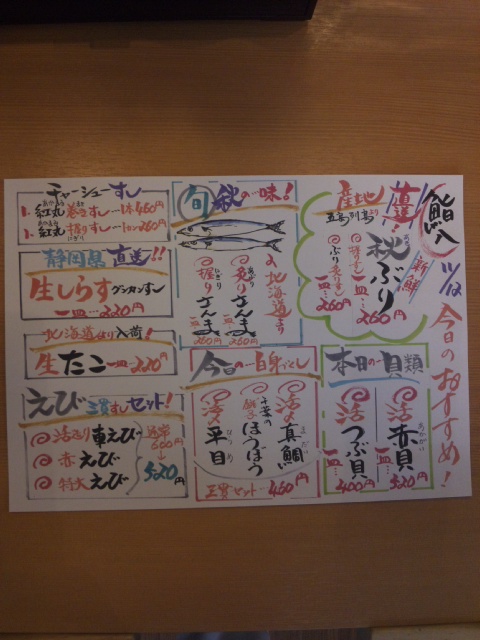 今日のおすすめ!
新鮮
産地直送!
五島列島より
秋ぶり
一皿…260円
ぶり
一皿…260円
旬 秋の味!
北海道より
炙りさんま
あぶり
一皿…260円
握りさんま
にぎり
一皿…260円
チャーシューすし
紅丸 巻きすし 1本460円
紅丸 握りすし 260円
にぎり
静岡県直送!!
生しらす グンカンすし
一皿…220円
北海道より入荷!
生たこ 一皿…220円
本日の貝類
活 赤貝
あかがい
一皿…520円
活 つぶ貝
一皿…400円
今日の白身づくし
活 真鯛
まだい
千葉の
ほうぼう
冷 平目
ひらめ
三貫セット…460円
えび 三貫すしセット!
活〆り 車えび
赤えび
特大えび
通常
600円
↓
520円